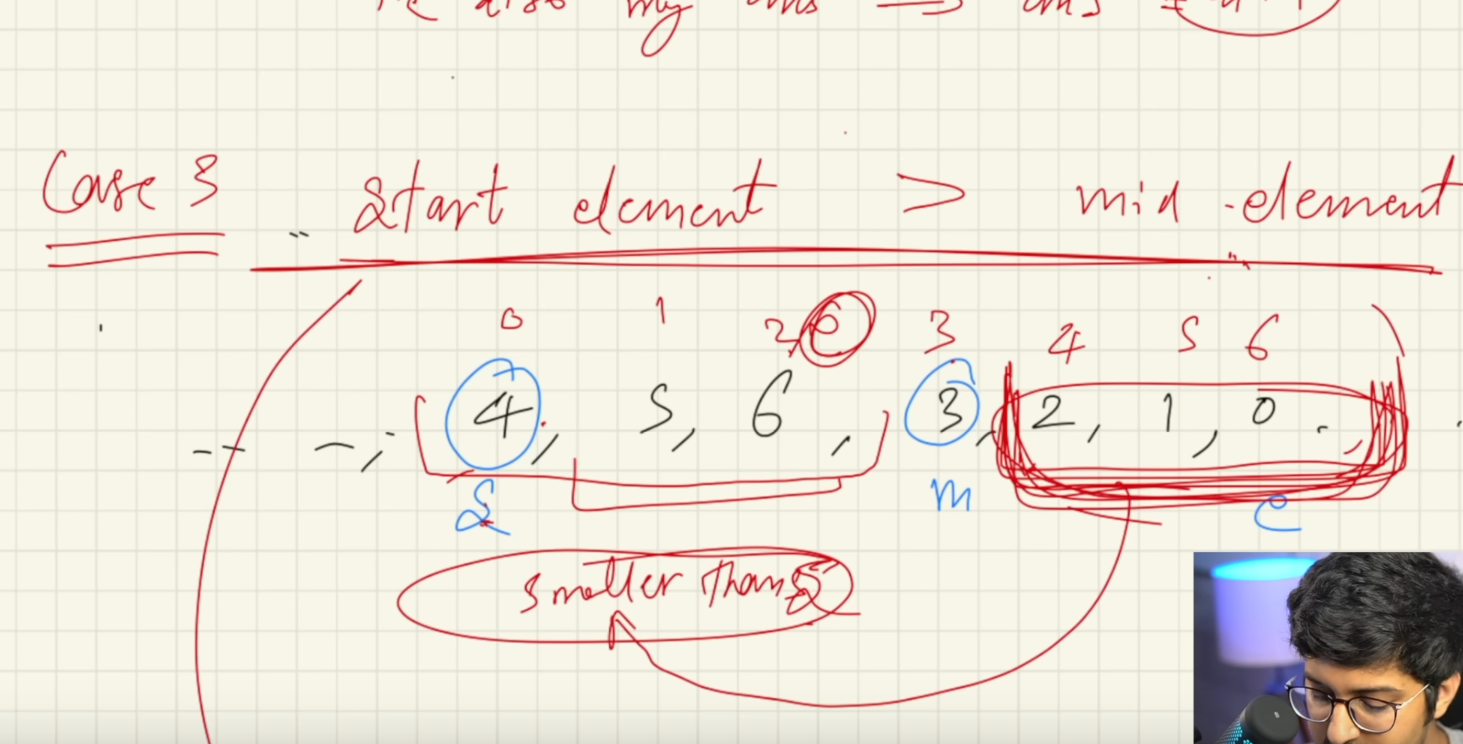 my ans → ans
Case 3 Start element > mid-element
0 1 2 6 3 4 5 6
-- -, [4, 5, 6, ] 3, [2, 1, 0 . , ]
S m e
smaller than S